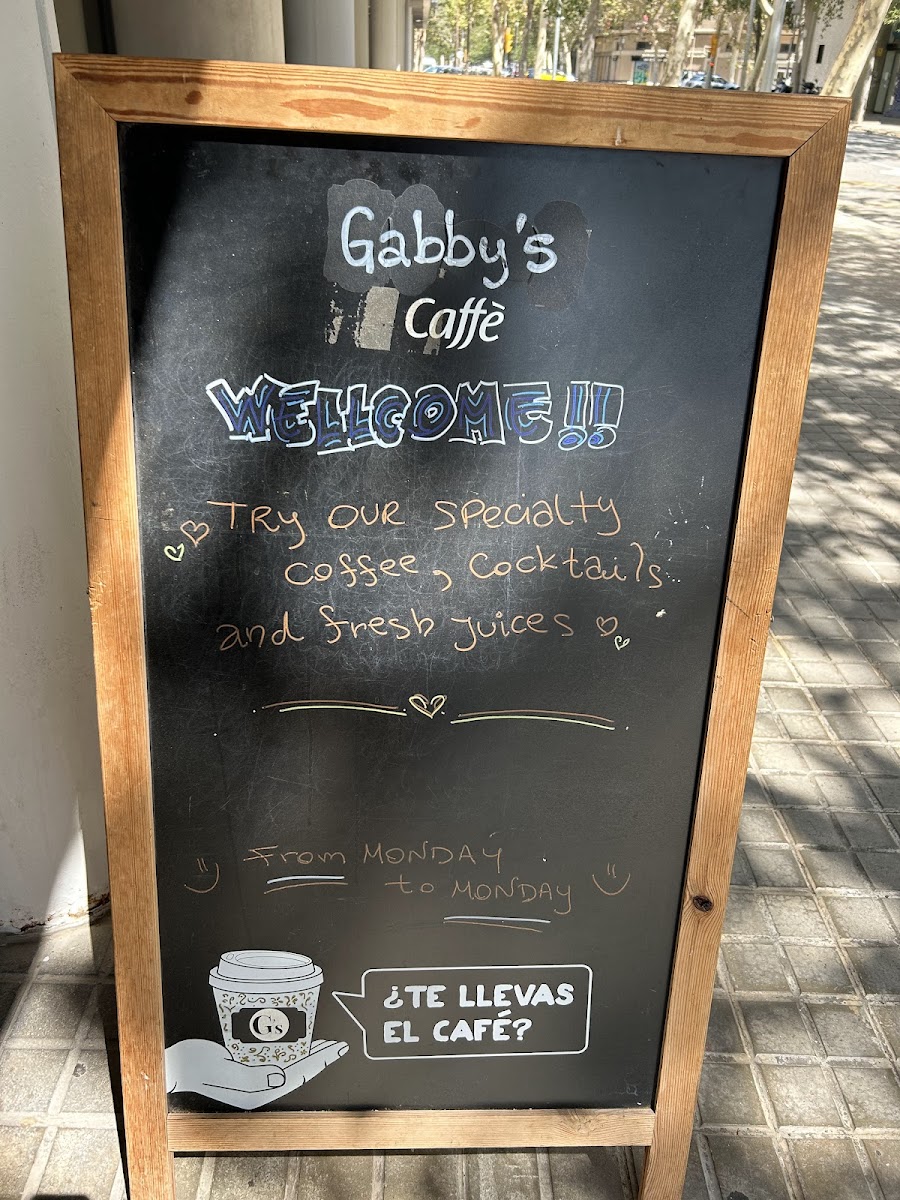 Gabby's
Caffè
WELLCOME!!
TRy OUR SPecialty
coffee, Cocktails
and fresh Juices
From MONDAY
to MONDAY
G's
¿TE LLEVAS
EL CAFÉ?